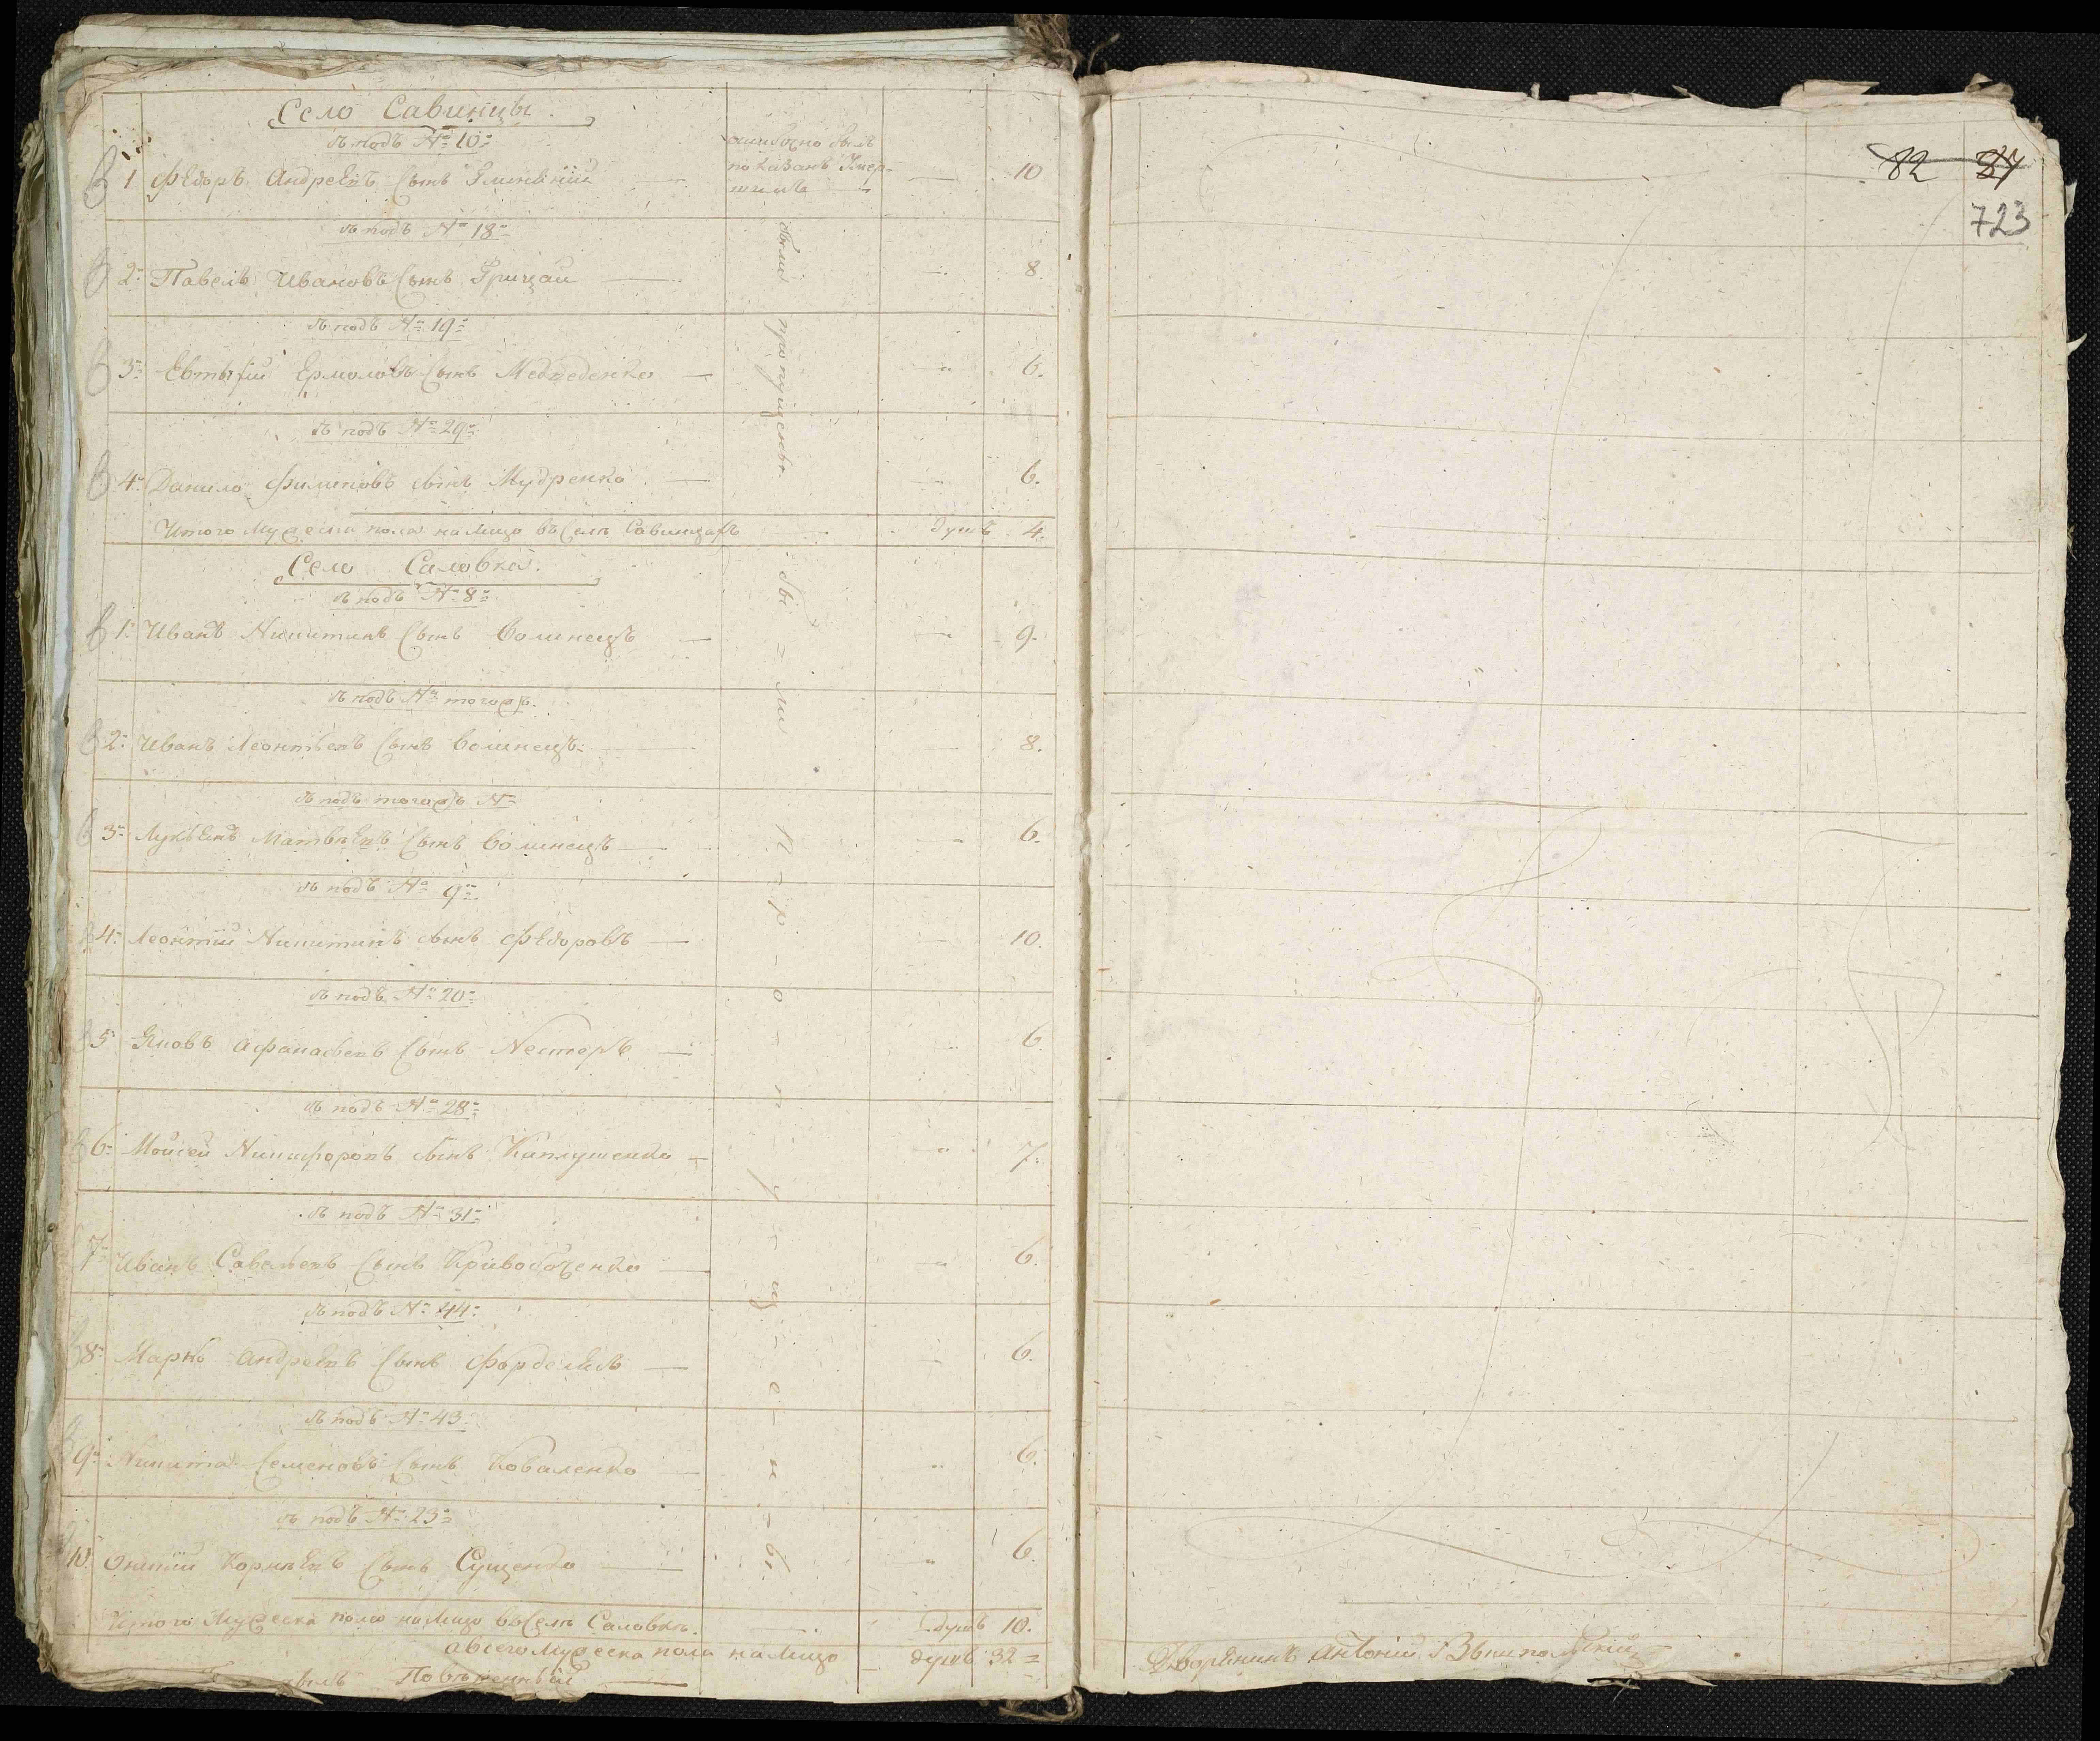 Село Савинцы.
въ подъ № 10
ошибочно былъ
показанъ умер-
шимъ
1 Федоръ Андреевъ сынъ 10
въ подъ № 18
были пропущены
2 Павелъ Ивановъ сынъ Грицай 8.
въ подъ № 19
3 Евтыфій Ермоловъ сынъ Медведенко 6.
въ подъ № 29
4 Данило Филиповъ сынъ Мудренко 6.
Итого мужеска пола на лицо въ селѣ Савинцахъ душъ 4.
Село Саловка.
въ подъ № 8
бы = ли п-р-о-п-у-щ-е-н-ы.
1. Иванъ Никитинъ сынъ Волинецъ 9.
въ подъ № тогожъ.
2. Иванъ Леонтьевъ сынъ Волинецъ 8.
въ подъ тогожъ №
3 Лукьянъ Матвѣевъ сынъ Волинецъ 6.
въ подъ № 9
4. Леонтій Никитинъ сынъ Федоровъ 10.
въ подъ № 20
5 Яковъ Афанасьевъ сынъ Нестеръ 6
въ подъ № 28
6 Мойсей Никифоровъ сынъ Каплушенко 7.
въ подъ № 31
7 Иванъ Савельевъ сынъ 6.
въ подъ № 44
8 Марко Андреевъ сынъ 6.
въ подъ № 43
9 Никита Семеновъ сынъ Коваленко 6.
въ подъ № 23
10. Корнѣевъ сынъ Сущенко 6.
Итого мужеска пола на лицо въ селѣ Саловкѣ. душъ 10.
а всего мужеска пола на лицо душъ 32 =
Повѣренный
82 87
723
Дворянинъ Антоній